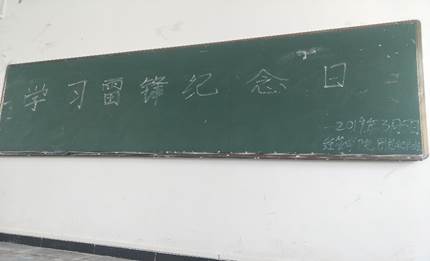 学习雷锋纪念日
2019年3月5日
经管学院